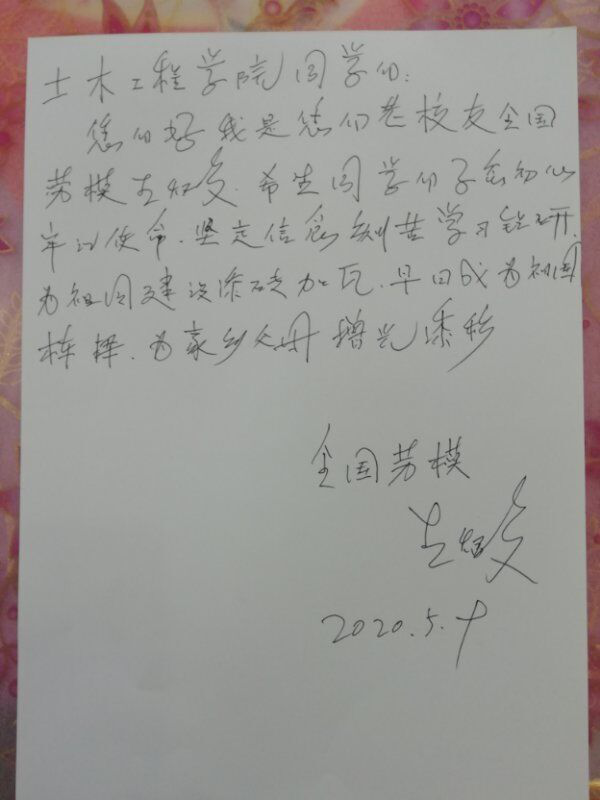 土木工程学院同学们:
您们好我是您们老校友全国
劳模左 希望同学们不忘初心
牢记使命.坚定信念刻苦学习钻研.
为祖国建设添砖加瓦.早日成为祖国
栋梁.为家乡父母增光添彩
全国劳模
左
2020.5.9